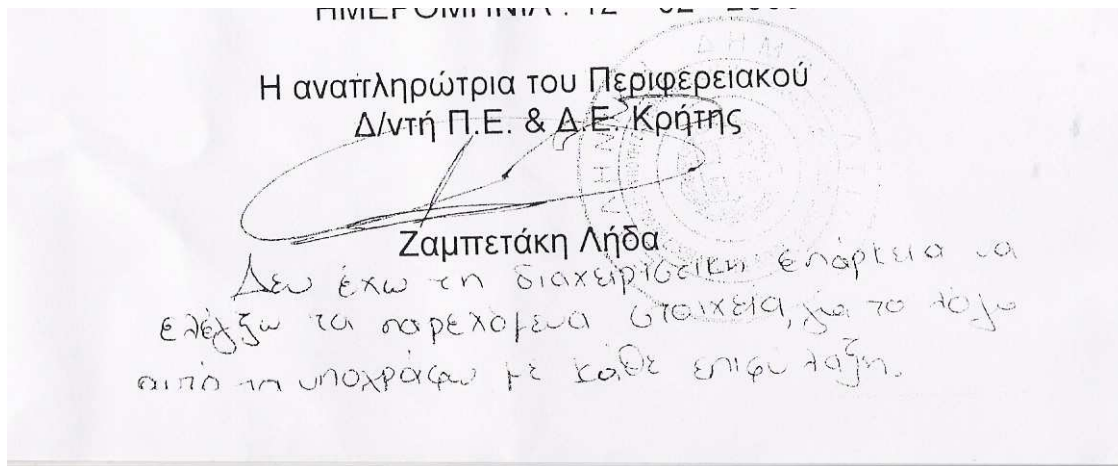 ΗΜΕΡΟΜΗΝΙΑ : 12 - 02 -
Η αναπληρώτρια του Περιφερειακού
Δ/ντή Π.Ε. & Δ.Ε. Κρήτης
Ζαμπετάκη Λήδα
Δεν έχω τη διαχειριστική επάρκεια να
ελέγξω τα παρεχόμενα στοιχεία, για το λόγο
αυτό τα υπογράφω με κάθε επιφύλαξη.